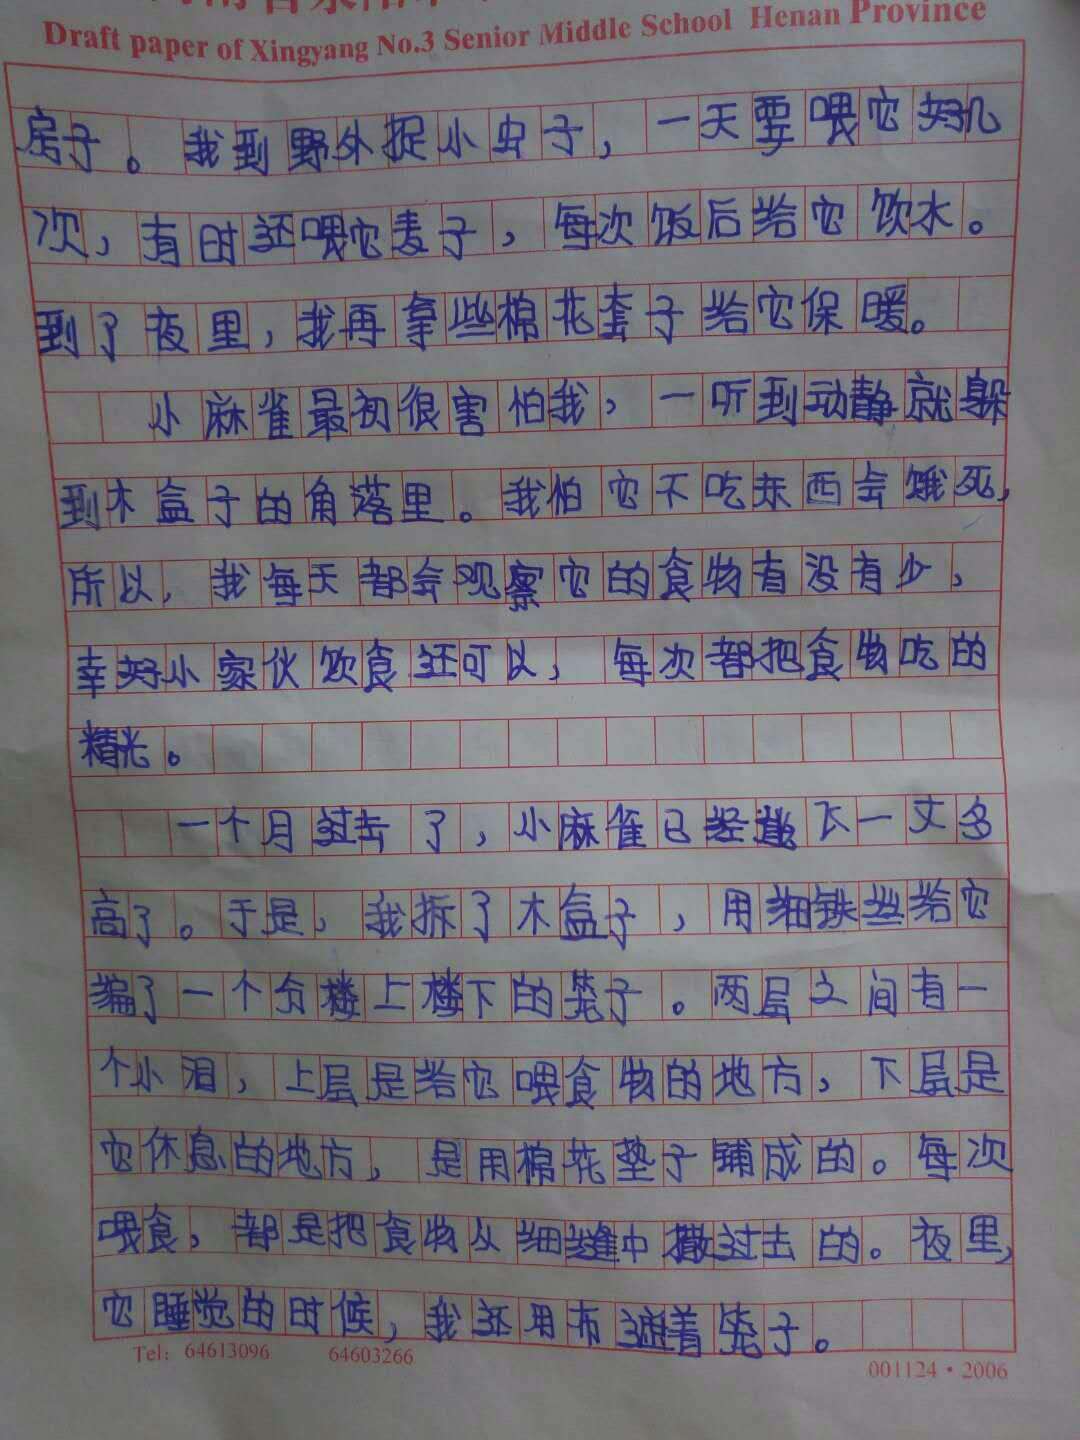 Draft paper of Xingyang No.3 Senior Middle School Henan Province
房子。我到野外捉小虫子，一天要喂它好几
次，有时还喂它麦子，每次饭后给它饮水。
到了夜里，我再拿些棉花套子给它保暖。
小麻雀最初很害怕我，一听到动静就躲
到木盒子的角落里。我怕它不吃东西会饿死，
所以，我每天都会观察它的食物有没有少，
幸好小家伙饮食还可以，每次都把食物吃的
精光。
一个月过去了，小麻雀已经能飞一丈多
高了。于是，我拆了木盒子，用细铁丝给它
编了一个分楼上楼下的笼子。两层之间有一
个小洞，上层是给它喂食物的地方，下层是
它休息的地方，是用棉花垫子铺成的。每次
喂食，都是把食物从细缝中撒过去的。夜里，
它睡觉的时候，我还用布遮着笼子。
Tel: 64613096 64603266
001124·2006